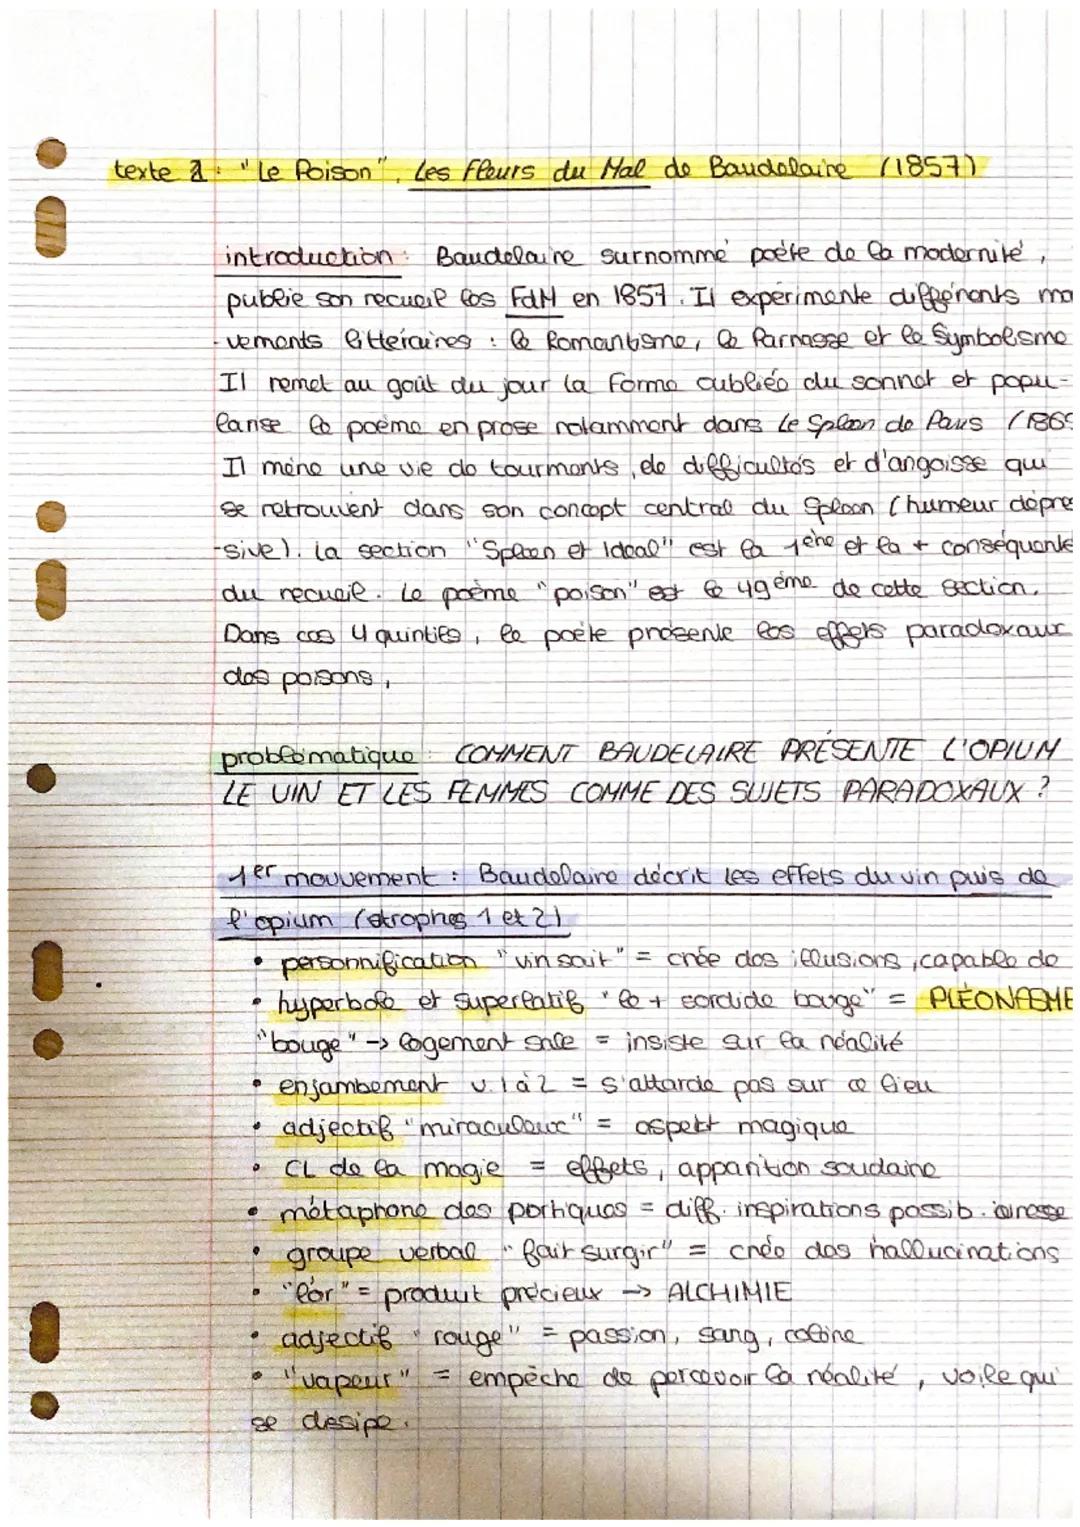 texte 2 : "Le Poison", Les Fleurs du Mal de Baudelaire (1857)
introduction : Baudelaire surnommé poète de la modernité,
publie son recueil les FdM en 1857. Il expérimente différents mou
-vements littéraires : le Romantisme, le Parnasse et le Symbolisme
Il remet au goût du jour la forme oubliée du sonnet et popu-
larise le poème en prose notamment dans Le Spleen de Paris (1869
Il mène une vie de tourments, de difficultés et d'angoisse qui
se retrouvent dans son concept central du Spleen (humeur dépres
-sive). La section "Spleen et Idéal" est la 1ère et la + conséquente
du recueil. Le poème "poison" est le 49ème de cette section.
Dans ces 4 quintiles, le poète présente les effets paradoxaux
des poisons,
problématique : COMMENT BAUDELAIRE PRÉSENTE L'OPIUM
LE VIN ET LES FEMMES COMME DES SUJETS PARADOXAUX ?
1er mouvement : Baudelaire décrit les effets du vin puis de
l'opium (strophes 1 et 2)
• personnification "vin sait" = crée des illusions, capable de
• hyperbole et superlatif "le + sordide bouge" = PLÉONASME
"bouge" -> logement sale = insiste sur la réalité
• enjambement v.1 à 2 = s'attarde pas sur ce lieu
• adjectif "miraculeux" = aspect magique
• CL de la magie = effets, apparition soudaine
• métaphore des portiques = diff. inspirations possib. ivresse
• groupe verbal "fait surgir" = crée des hallucinations
• "l'or" = produit précieux -> ALCHIMIE
• adjectif "rouge" = passion, sang, colère
• "vapeur" = empêche de percevoir la réalité, voile qui
se dissipe.